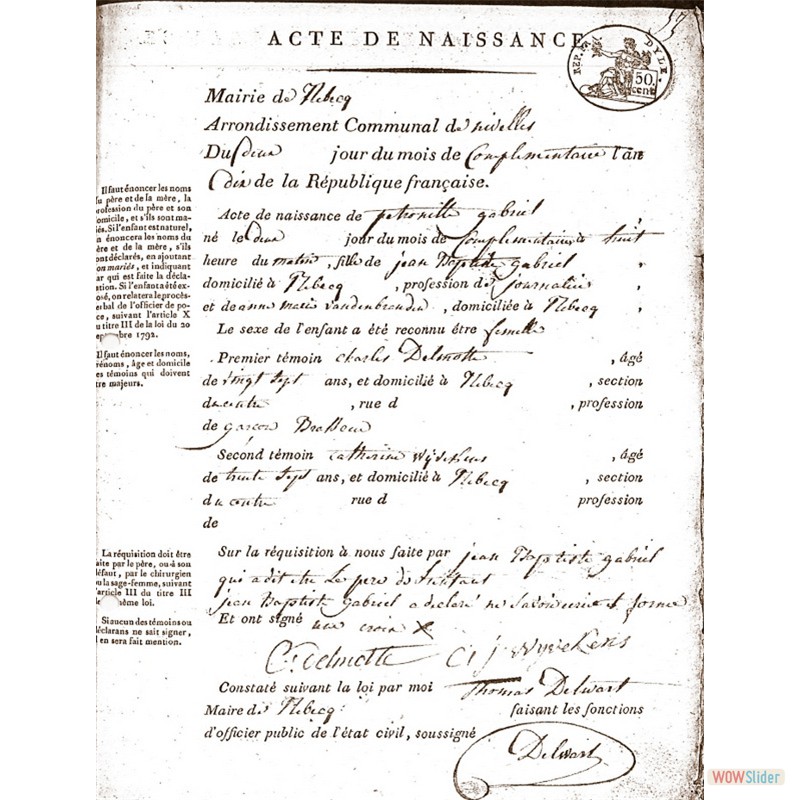 ACTE DE NAISSANCE
RÉP. DYLE.
50.
cent
Mairie de Rebecq
Arrondissement Communal de nivelles
Du deux jour du mois de Complementaire l'an
dix de la République française.
Acte de naissance de petronille gabriel
né le deux jour du mois de Complementaire à huit
heure du matin, fille de jean Baptiste gabriel ,
domicilié à Rebecq , profession de journalier ,
et de anne marie vandenbranden , domiciliée à Rebecq ,
Le sexe de l'enfant a été reconnu être femelle
Premier témoin Charles Delmotte , âgé
de vingt sept ans, et domicilié à Rebecq , section
du centre , rue d , profession
de garcon Brasseur
Second témoin catherine wyvekens , âgé
de trente sept ans, et domicilié à Rebecq , section
du centre rue d profession
de
Sur la réquisition à nous faite par jean Baptiste gabriel
qui a dit etre Le pere de L'enfant
jean Baptiste gabriel a declaré ne savoir ecrire et forme
Et ont signé une croix X
C. Delmotte C j wyvekens
Constaté suivant la loi par moi Thomas Delwart
Maire de Rebecq faisant les fonctions
d'officier public de l'état civil, soussigné
Delwart
Il faut énoncer les noms
du père et de la mère, la
profession du père et son
domicile, et s'ils sont ma-
riés. Si l'enfant est naturel,
on énoncera les noms du
père et de la mère, s'ils
sont déclarés, en ajoutant
non mariés, et indiquant
par qui est faite la décla-
ration. Si l'enfant a été ex-
posé, on relatera le procès-
verbal de l'officier de po-
lice, suivant l'article X
du titre III de la loi du 20
septembre 1792.
Il faut énoncer les noms,
prénoms, âge et domicile
des témoins qui doivent
être majeurs.
La réquisition doit être
faite par le père, ou à son
défaut, par le chirurgien
ou la sage-femme, suivant
l'article III du titre III
de même loi.
Si aucun des témoins ou
déclarans ne sait signer,
il en sera fait mention.
WOWSlider